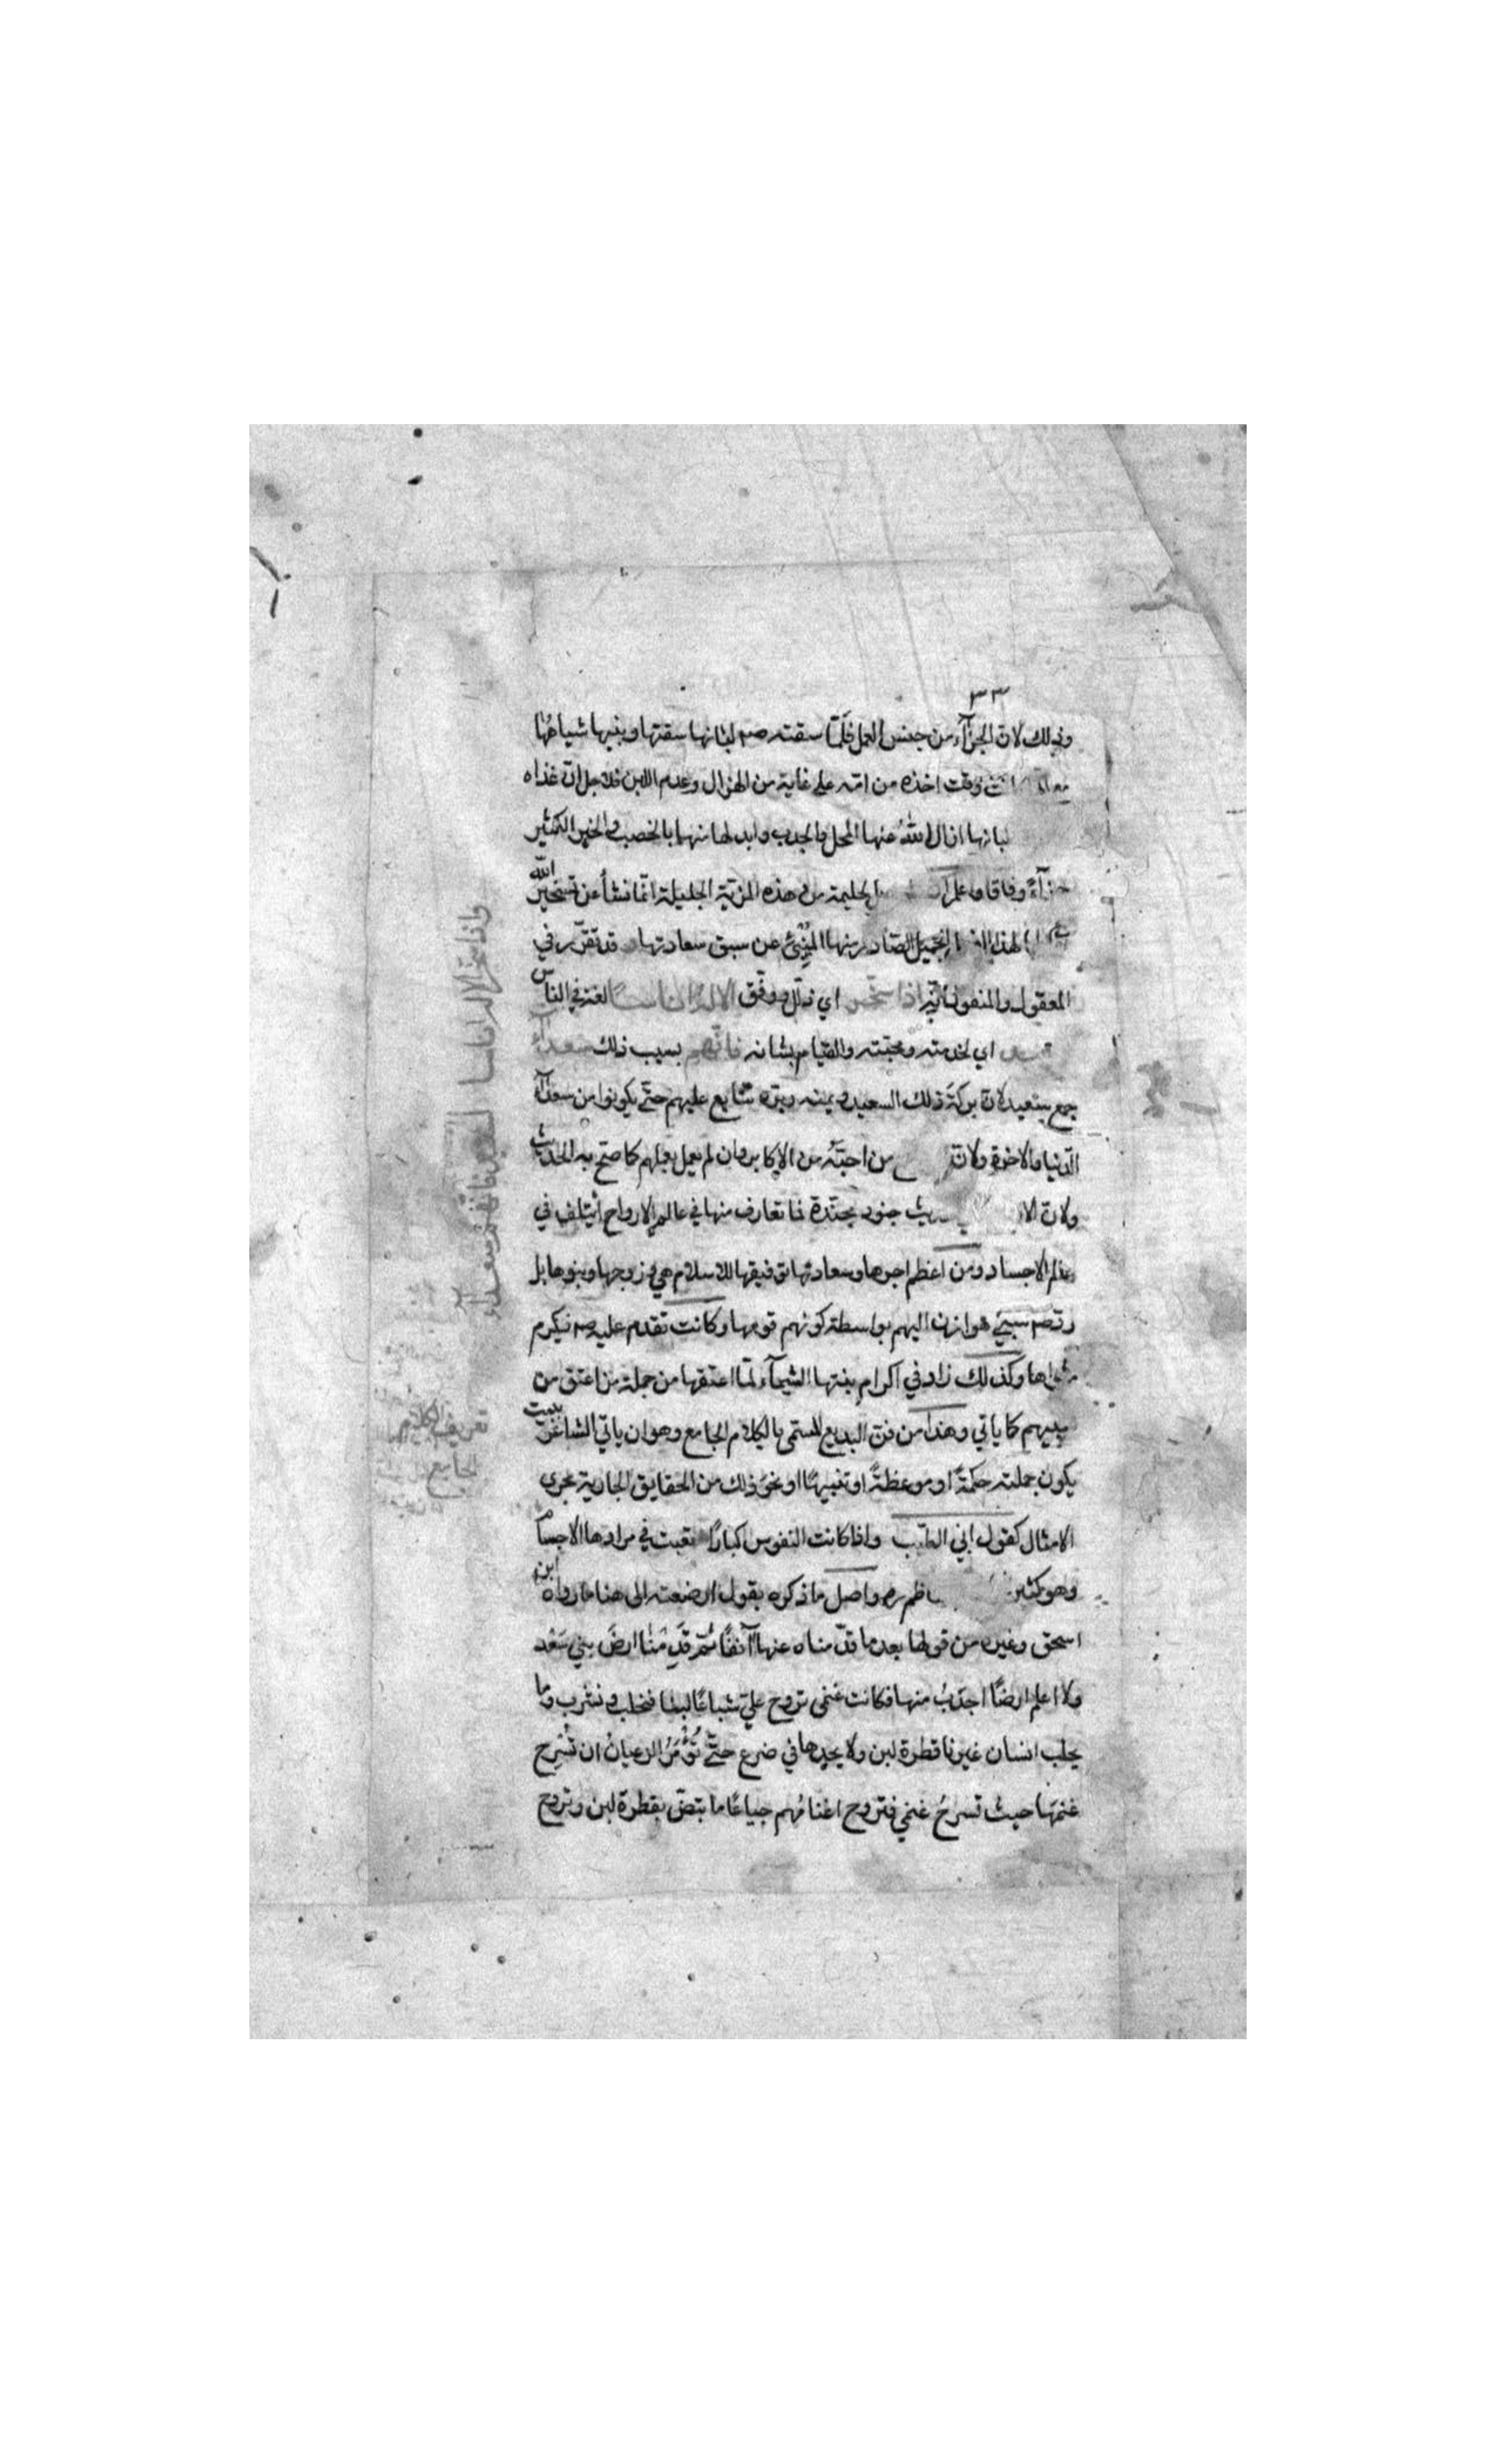 ٣٣
وذلك لان الجزآء من جنس العمل فلمّا سقته صم لبانها سقتها وبنيها شياهُها
وقت اخذه من امّه على غاية من الهزال وعدم اللبن فلاجل ان غذاه
لبانها ازال اللهُ عنها المحل والجدب وابدلها منهما بالخصب والخير الكثير
جزآءً وفاقا وما علم الحليمة من هذه المزيّة الجليلة انّما نشأ عن تسخير الله
لهذا الجميل الصّادر منها المُنبئ عن سبق سعادتها قد تقرّر في
المعقول والمنقول انّه اذا سخّر اي ذلّل ووفّق الاله اناسًا لعزيز في الناس
اي لخدمته ومحبّته والقيام بشانه فانّهم بسبب ذلك سعدآء
جمع سعيد لان بركة ذلك السعيد ويمنه وبرّه تتابع عليهم حتّى يكونوا من سعدآء
الدّنيا والاخرة ولان من احبّهُ من الاكابر وان لم يعمل بعملهم كما صحّ به الحديث
ولان الا جنود مجنّدة فما تعارف منها في عالم الارواح ائتلف في
عالم الاجساد ومن اعظم اجرها وسعادتها توفيقها للاسلام هي وزوجها وبنوها بل
ردّ صم سبيَ هوازن اليهم بواسطة كونهم قومها وكانت تقدم عليه صم فيكرم
مثواها وكذلك زاد في اكرام بنتها الشيمآء لمّا اعتقها من جملة من اعتق من
سبيهم كما ياتي وهذا من فنّ البديع المسمّى بالكلام الجامع وهو ان ياتي الشاعر ببيت
يكون جملته حكمةً او موعظةً او تنبيهًا او نحوَ ذلك من الحقايق الجارية مجرى
الامثال كقول ابي الطيّب واذا كانت النفوس كبارًا تعبت في مرادها الاجسام
وهو كثير ناظم ره واصل ما ذكره بقول ارضعته الى هنا ما رواه ابن
اسحق وغيره من قولها بعد ما قدّمناه عنها آنفًا ثمّ قدِمْنا ارضَ بني سَعْد
ولا اعلم ارضًا اجدَبَ منها فكانت غنمى تروح عليّ شباعًا لبنا فنحلب ونشرب وما
يحلب انسان غيرنا قطرة لبن ولا يجدها في ضرع حتّى تُؤْمَرُ الرعيانُ ان تُسْرِح
غنمَها حيث تسرحُ غنمي فتروح اغنامُهم جياعًا ما تبضّ بقطرة لبن وتروح
واذا سخر الاله اناسا لسعيد فانهم سعدآء
تعريف الكلام
الجامع